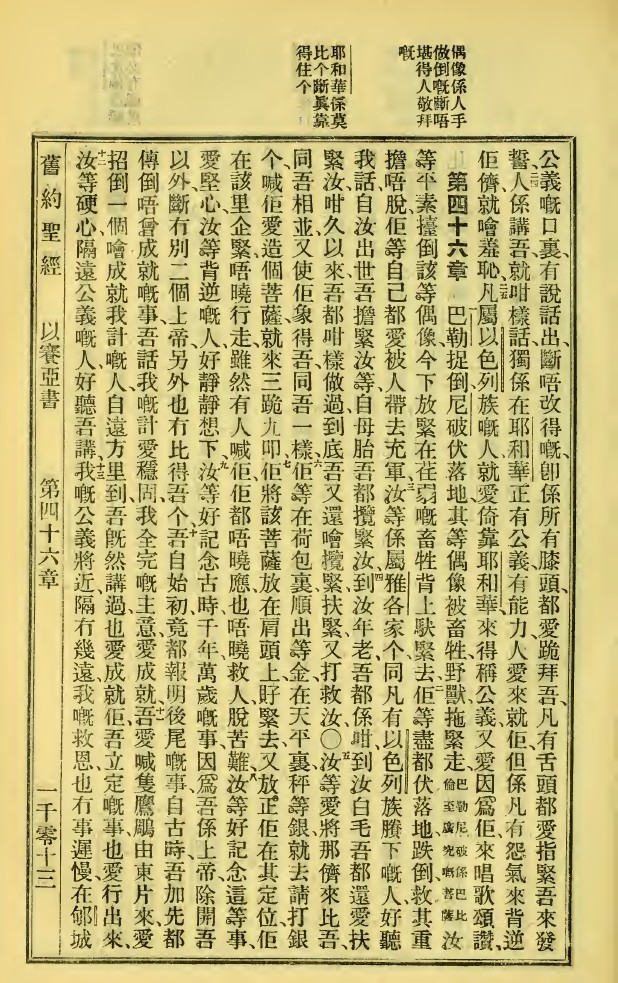 偶像係人手
做倒嘅斷唔
堪得人敬拜
嘅
耶和華係莫
比个斷眞靠
得住个
公義嘅口裏有說話出斷唔改得嘅卽係所有膝頭都愛跪拜吾凡有舌頭都愛指緊吾來發
誓二四人係講吾就咁樣話獨係在耶和華正有公義有能力人愛來就佢但係凡有怨氣來背逆
佢儕就噲羞恥二五凡屬以色列族嘅人就愛倚靠耶和華來得稱公義又愛因爲佢來唱歌頌讚
第四十六章 一巴勒捉倒尼破伏落地其等偶像被畜牲野獸拖緊走巴勒尼破係巴比倫至廣究嘅菩薩汝
等平素擡倒該等偶像今下放緊在荏弱嘅畜牲背上馱緊去二佢等盡都伏落地跌倒救其重
擔唔脫佢等自己都愛被人帶去充軍三汝等係屬雅各家个同凡有以色列族賸下嘅人好聽
我話自汝出世吾擔緊汝等自母胎吾都攬緊汝四到汝年老吾都係咁到汝白毛吾都還愛扶
緊汝咁久以來吾都咁樣做過到底吾又還噲攬緊扶緊又打救汝〇五汝等愛將那儕來比吾
同吾相並又使佢象得吾同吾一樣六佢等在荷包裏順出等金在天平裏秤等銀就去請打銀
个喊佢愛造個菩薩就來三跪九叩七佢將該菩薩放在肩頭上䀡緊去又放正佢在其定位佢
在該里企緊唔曉行走雖然有人喊佢佢都唔曉應也唔曉救人脫苦難八汝等好記念這等事
愛堅心汝等背逆嘅人好靜靜想下九汝等好記念古時千年萬歲嘅事因爲吾係上帝除開吾
以外斷冇別二個上帝另外也冇比得吾个十吾自始初竟都報明後尾嘅事自古時吾加先都
傳倒唔曾成就嘅事吾話我嘅計愛穩固我全完嘅主意愛成就十一吾愛喊隻鷹鵰由東片來愛
招倒一個噲成就我計嘅人自遠方里到吾旣然講過也愛成就佢吾立定嘅事也愛行出來
十二汝等硬心隔遠公義嘅人好聽吾講十三我嘅公義將近隔冇幾遠我嘅救恩也冇事遲慢在郇城
舊約聖經 以賽亞書 第四十六章 一千零十三